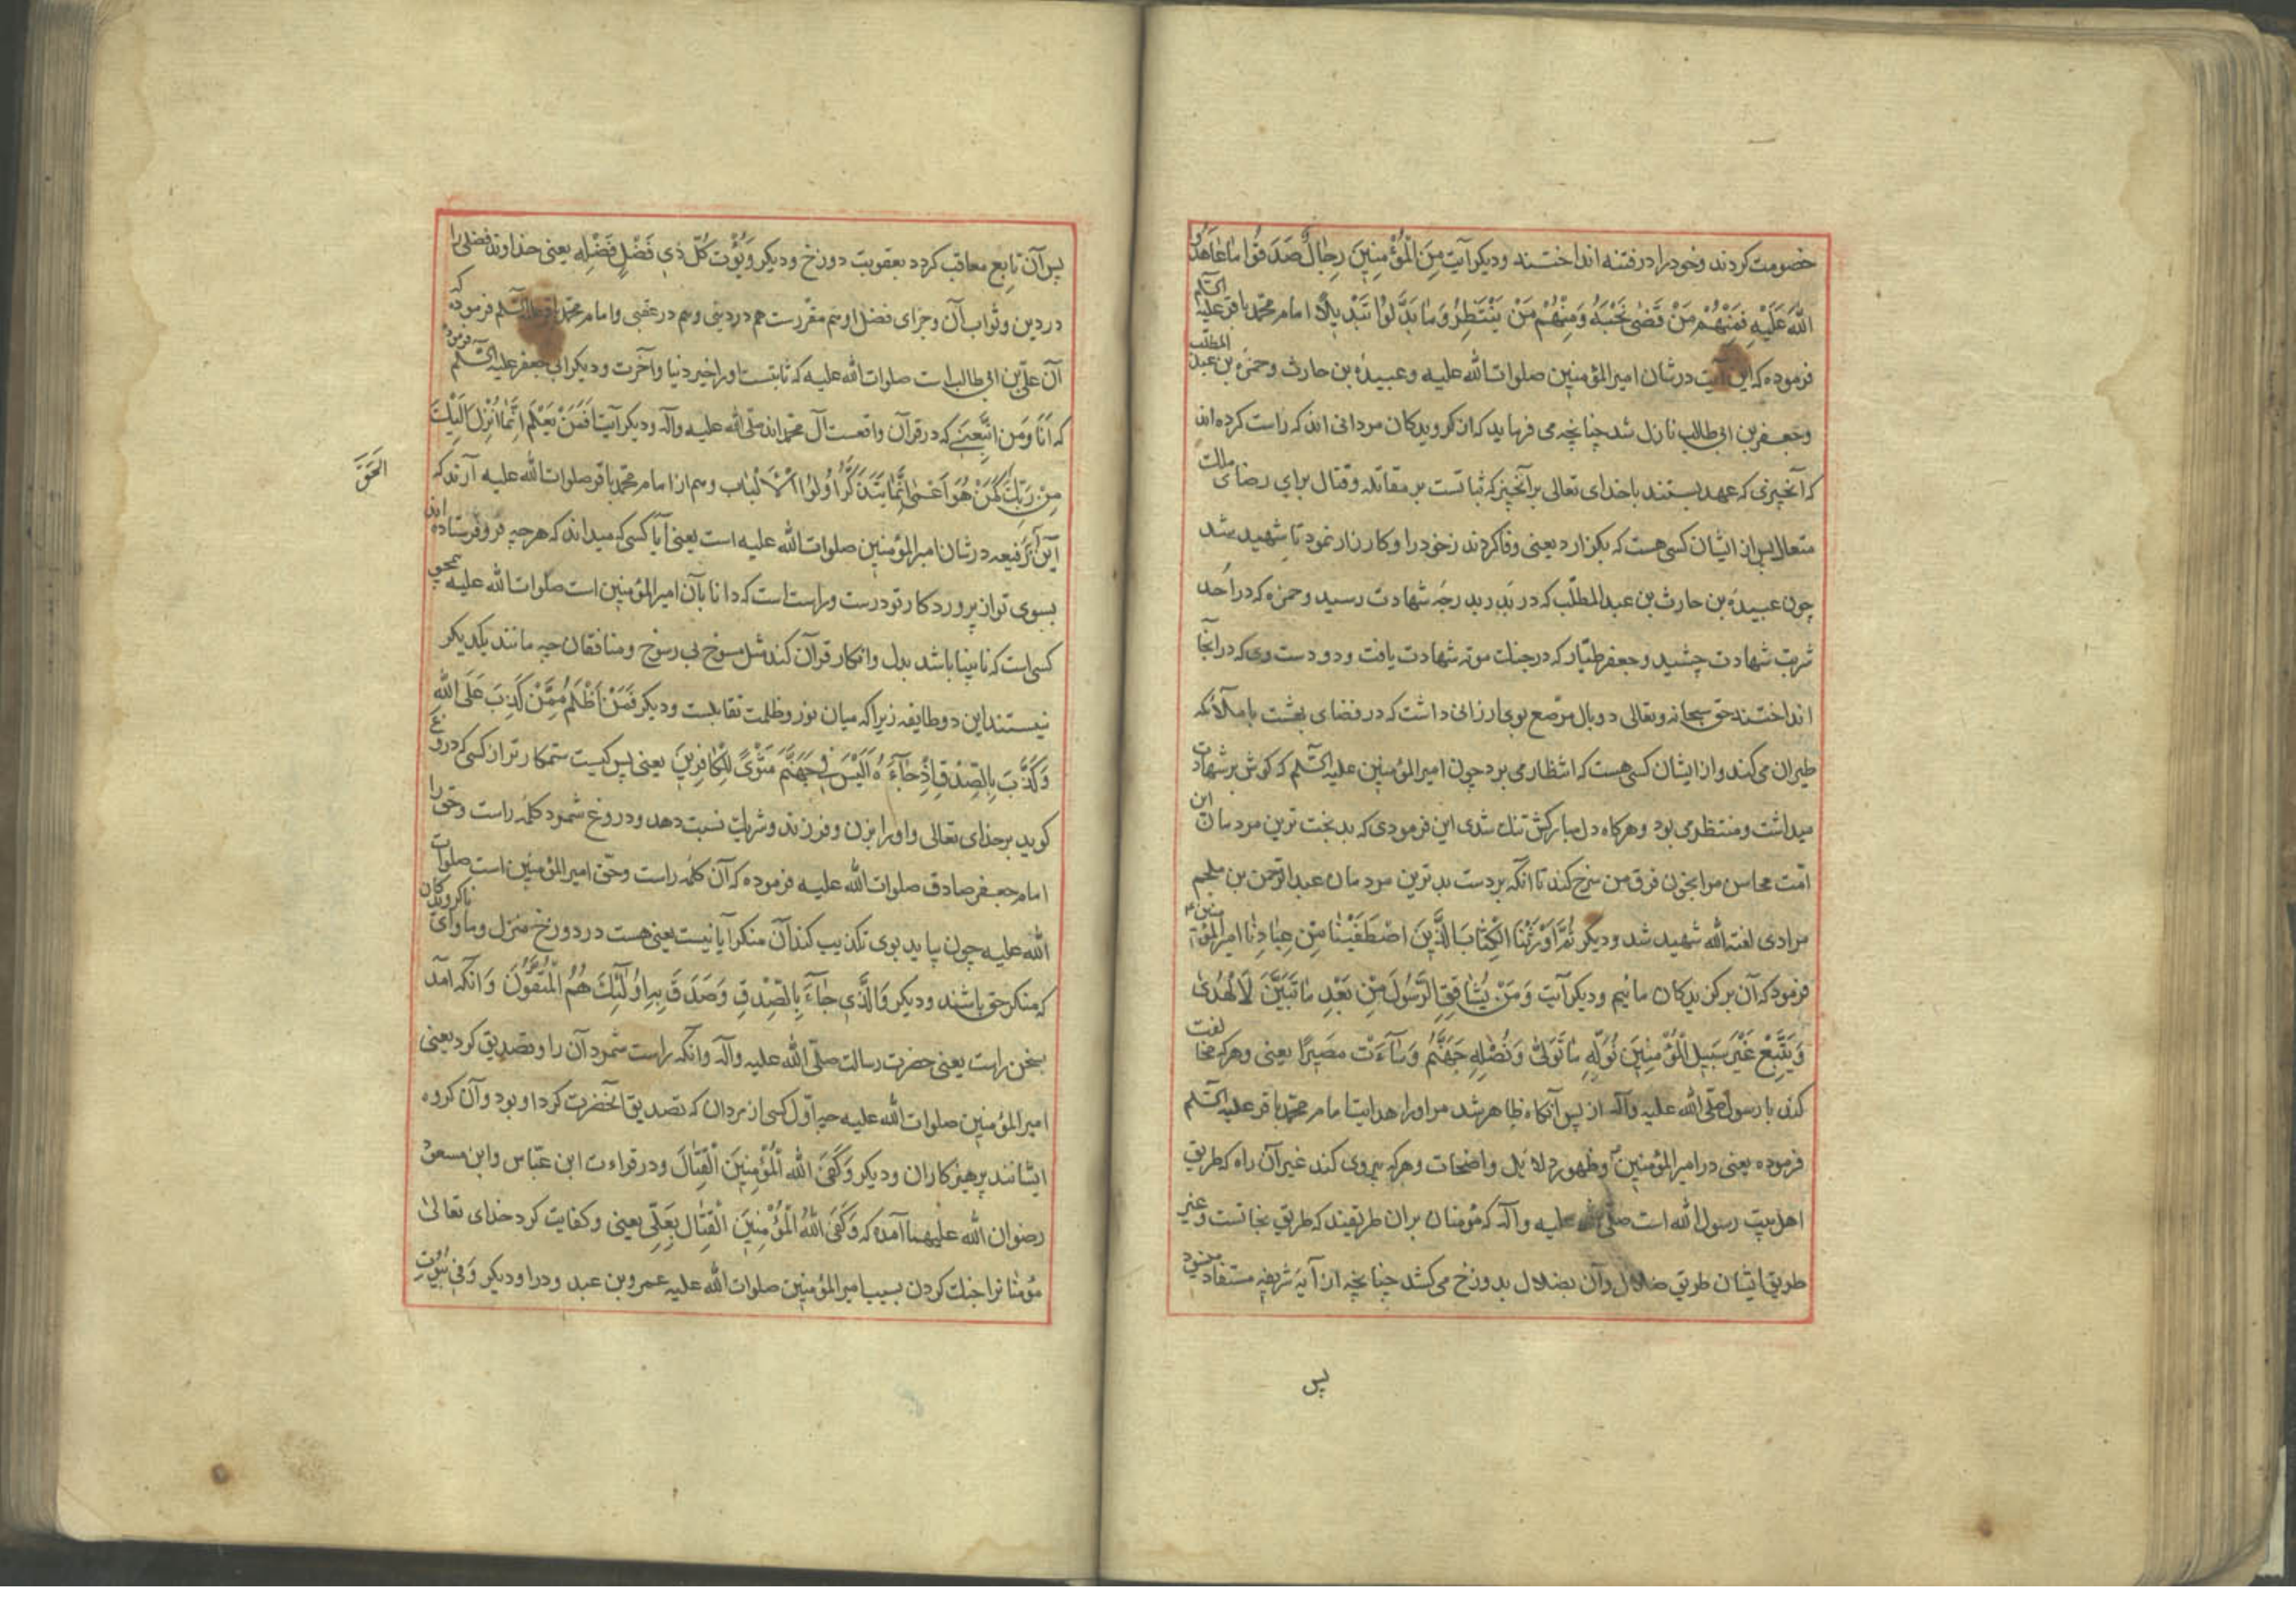 خصومت کردند و خود را در فتنه انداختند و دیکر آیت مِنَ الْمُؤْمِنِینَ رِجَالٌ صَدَقُوا مَا عَاهَدُوا
اللّٰهَ عَلَیْهِ فَمِنْهُمْ مَنْ قَضٰی نَحْبَهُ وَمِنْهُمْ مَنْ یَنْتَظِرُ وَمَا بَدَّلُوا تَبْدِیلًا امام محمّد باقر علیه السّلم
فرموده که این آیت در شان امیرالمؤمنین صلوات الله علیه و عبیدهٔ بن حارث و حمزهٔ بن عبد المطلّب
و جعفر بن ابی طالب نازل شد چنانچه می فرماید که از کرویدکان مردانی اند که راست کرده اند
که آنچیزی که عهد بستند با خدای تعالی بر آنچیز که ثباتست بر مقاتله و قتال برای رضای ملک
متعال پس از ایشان کسی هست که بکزارد یعنی وفا کردند نذر خود را و کارزار نمود تا شهید شد
چون عبیدهٔ بن حارث بن عبد المطلّب که در بدر بدرجهٔ شهادت رسید و حمزه که در اُحد
شربت شهادت چشید و جعفر طیّار که در جنک موته شهادت یافت و دو دست وی که در آنجا
انداختند حق سبحانه و تعالی دو بال مرصّع بوی ارزانی داشت که در فضای بهشت با ملآئکه
طیران می کند و از ایشان کسی هست که انتظار می برد چون امیرالمؤمنین علیه السّلم که کوش بر شهادت
میداشت و منتظر می بود و هرکاه دل مبارکش تنک شدی این فرمودی که بدبخت ترین مردمان این
امّت محاسن مرا بخون فرق من سرخ کند تا آنکه بر دست بدترین مردمان عبد الرّحمن بن ملجم
مرادی لعنه الله شهید شد و دیکر ثُمَّ اَوْرَثْنَا الْکِتَابَ الَّذِینَ اصْطَفَیْنَا مِنْ عِبَادِنَا امیرالمؤمنین ع
فرمود که آن برکزیدکان مائیم و دیکر آیت وَمَنْ یُشَاقِقِ الرَّسُولَ مِنْ بَعْدِ مَا تَبَیَّنَ لَهُ الْهُدٰی
وَیَتَّبِعْ غَیْرَ سَبِیلِ الْمُؤْمِنِینَ نُوَلِّهِ مَا تَوَلّٰی وَنُصْلِهِ جَهَنَّمَ وَسَآءَتْ مَصِیرًا یعنی و هرکه مخالفت
کند با رسول صلّی الله علیه وآله از پس آنکاه ظاهر شد مر او را هدایت امام محمّد باقر علیه السّلم
فرموده یعنی در امیرالمؤمنین و ظهور دلایل واضحات و هرکه پیروی کند غیر آن راه که طریق
اهل بیت رسول الله است صلی الله علیه وآله که مؤمنان بران طریقند که طریق نجاتست و غیر
طریق ایشان طریق ضلال و آن بضلال بدوزخ می کشد چنانچه از آیهٔ شریفه مستفاد میشود
پس
پس آن تابع معاقب کردد بعقوبت دوزخ و دیکر وَیُؤْتِ کُلَّ ذِی فَضْلٍ فَضْلَهُ یعنی خداوند فضلی را
در دین و ثواب آن و جزای فضل او هم مقررست هم در دینی و هم در عقبی و امام محمّد باقر علیه السّلم فرموده که
آن علیّ بن ابی طالب است صلوات الله علیه که ثابتست او را خیر دنیا و آخرت و دیکر ابی جعفر علیه السّلم فرمود
که اَنَا وَمَنِ اتَّبَعَنِی که در قرآن واقعست آل محمّد اند صلّی الله علیه وآله و دیکر آیت اَفَمَنْ یَعْلَمُ اَنَّمَا اُنْزِلَ اِلَیْکَ
مِنْ رَبِّکَ الْحَقَّ کَمَنْ هُوَ اَعْمٰی اِنَّمَا یَتَذَکَّرُ اُولُوا الْاَلْبَابِ و هم از امام محمّد باقر صلوات الله علیه آرند که
این آیهٔ رفیعه در شان امیرالمؤمنین صلوات الله علیه است یعنی آیا کسی که میداند که هرچه فرو فرستاده اند
بسوی تو از پروردکار تو درست و راست است که دانا بآن امیرالمؤمنین است صلوات الله علیه همچو
کسی است که نابینا باشد بدل و انکار قرآن کند مثل منسوخ بی رسوخ و منافقان چه مانند یکدیکر
نیستند این دو طایفه زیرا که میان نور و ظلمت تقابلست و دیکر فَمَنْ اَظْلَمُ مِمَّنْ کَذَبَ عَلَی اللّٰهِ
وَکَذَّبَ بِالصِّدْقِ اِذْ جَآءَهُ اَلَیْسَ فِی جَهَنَّمَ مَثْوًی لِلْکَافِرِینَ یعنی پس کیست ستمکارتر از کسی که دروغ
کوید بر خدای تعالی و او را بزن و فرزند و شریک نسبت دهد و دروغ شمرد کلمهٔ راست و حق را
امام جعفر صادق صلوات الله علیه فرموده که آن کلمهٔ راست و حقّ امیرالمؤمنین است صلوات
الله علیه چون بیاید بوی تکذیب کند آن منکر آیا نیست یعنی هست در دوزخ منزل و ماوای ناکرویدکان
که منکر حق باشند و دیکر وَالَّذِی جَآءَ بِالصِّدْقِ وَصَدَّقَ بِهِ اُولٰٓئِکَ هُمُ الْمُتَّقُونَ و آنکه آمد
بسخن راست یعنی حضرت رسالت صلّی الله علیه وآله و آنکه راست شمرد آن را و تصدیق کرد یعنی
امیرالمؤمنین صلوات الله علیه چه اوّل کسی از مردان که تصدیق آنحضرت کرد او بود و آن کروه
ایشانند پرهیزکاران و دیکر وَکَفَی اللّٰهُ الْمُؤْمِنِینَ الْقِتَالَ و در قراءت ابن عبّاس و ابن مسعود
رضوان الله علیهما آمده که وَکَفَی اللّٰهُ الْمُؤْمِنِینَ الْقِتَالَ بِعَلِیٍّ یعنی و کفایت کرد خدای تعالیٰ
مؤمنانرا جنک کردن بسبب امیرالمؤمنین صلوات الله علیه عمرو بن عبد ود را و دیکر وَفِی بُیُوتٍ